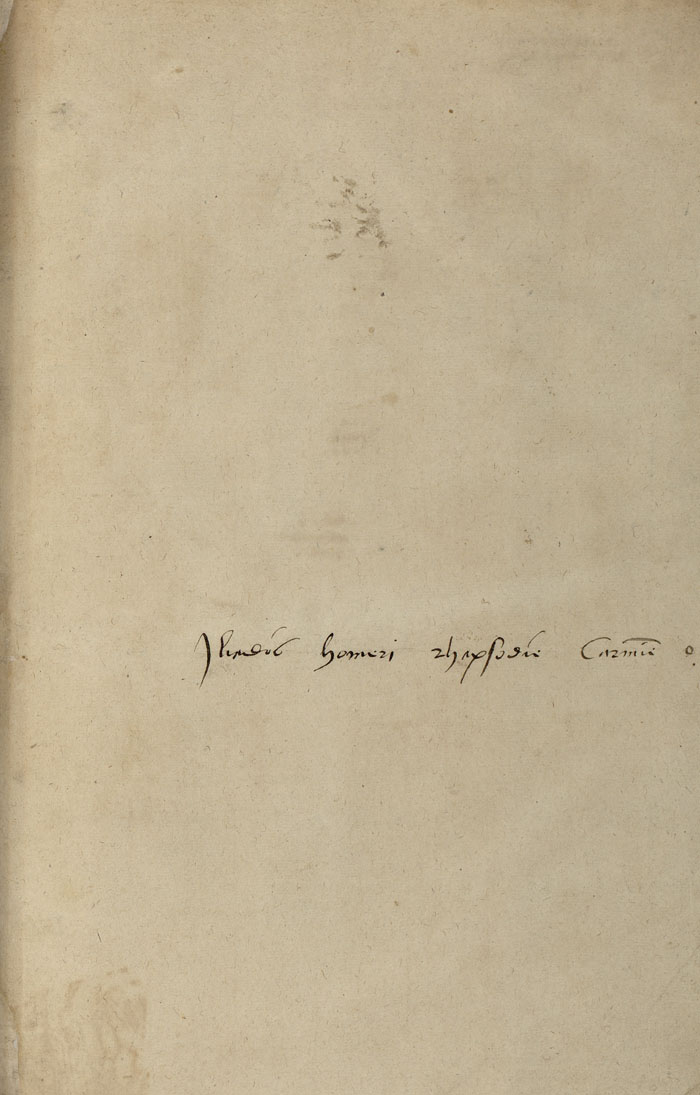 Iliados homeri rhapsodie Carmīe o.